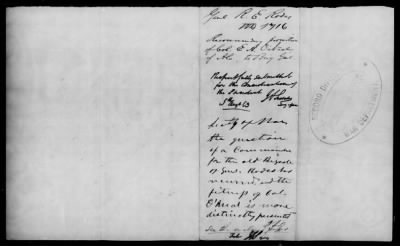 Genl R. E. Rodes
1716
Recommending promotion
of Col. E. A. O'Neal
of Ala to Brig Genl
Respectfully submitted
for the consideration of
the President
Secy of War
the question
of a Commander
for the old Brigade
of Genl. Rodes has
recurred, and the
fitness of Col.
O'Neal is more
distinctly presented